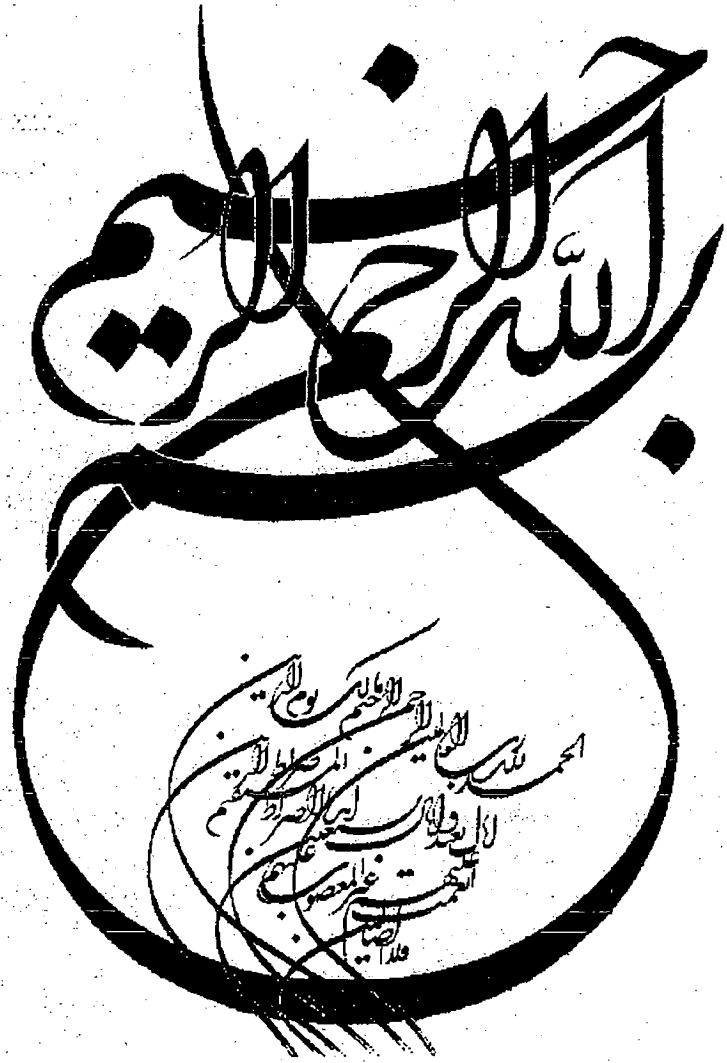 بسم الله الرحمن الرحیم
الحمد لله رب العالمین الرحمن الرحیم مالک یوم الدین
ایاک نعبد و ایاک نستعین اهدنا الصراط المستقیم صراط الذین
انعمت علیهم غیر المغضوب علیهم ولا الضالین